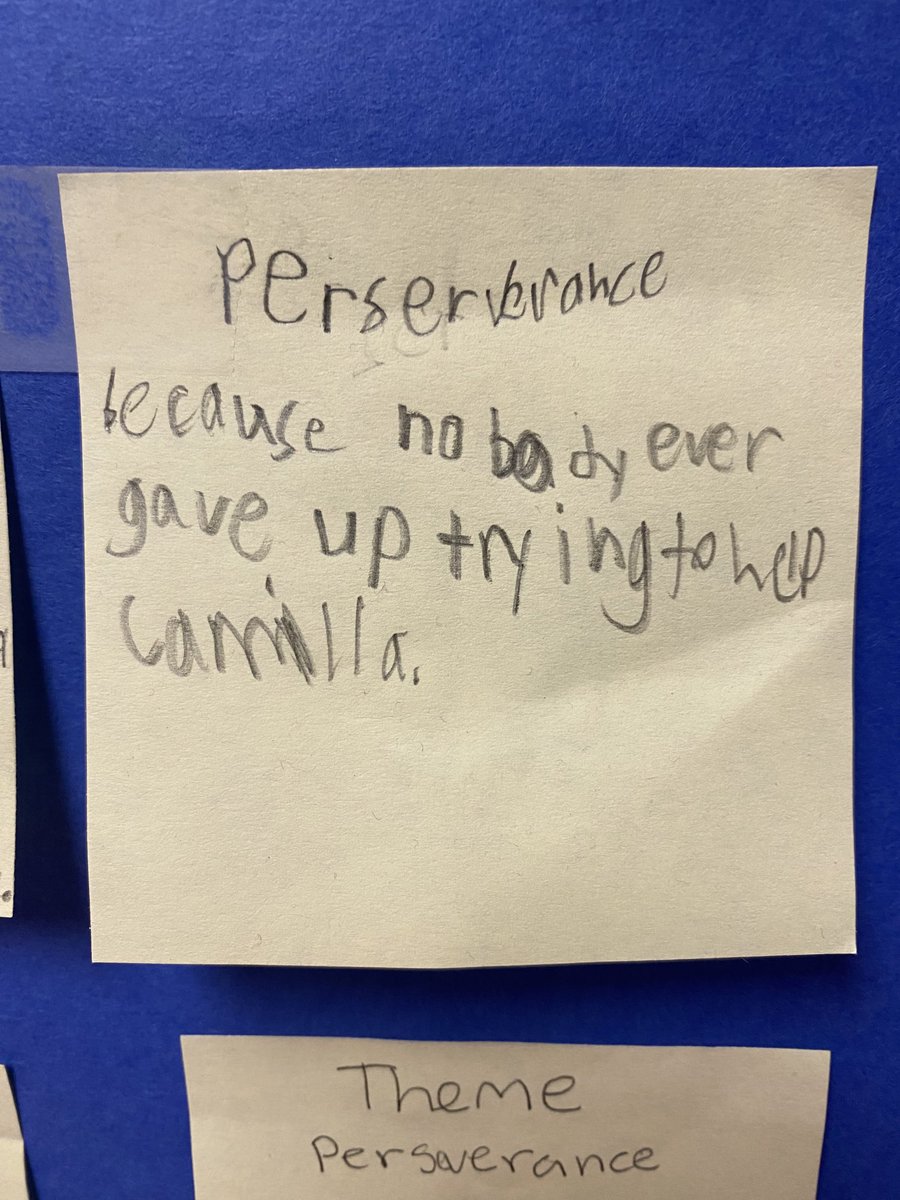 Perserverance
because nobody ever
gave up trying to help
Camilla.
Theme
Perserverance